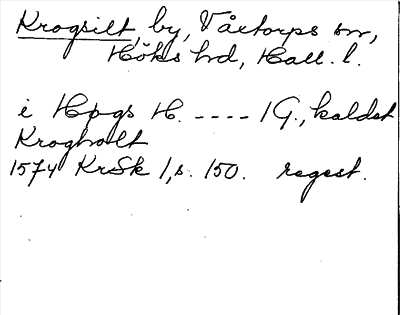 Krogsilt, by, Våxtorps sn,
Höks hd, Hall. l.
i Høgs H. ---- 1 G., kaldet
Krogholt
1574 KrSk 1, s. 150. regest.